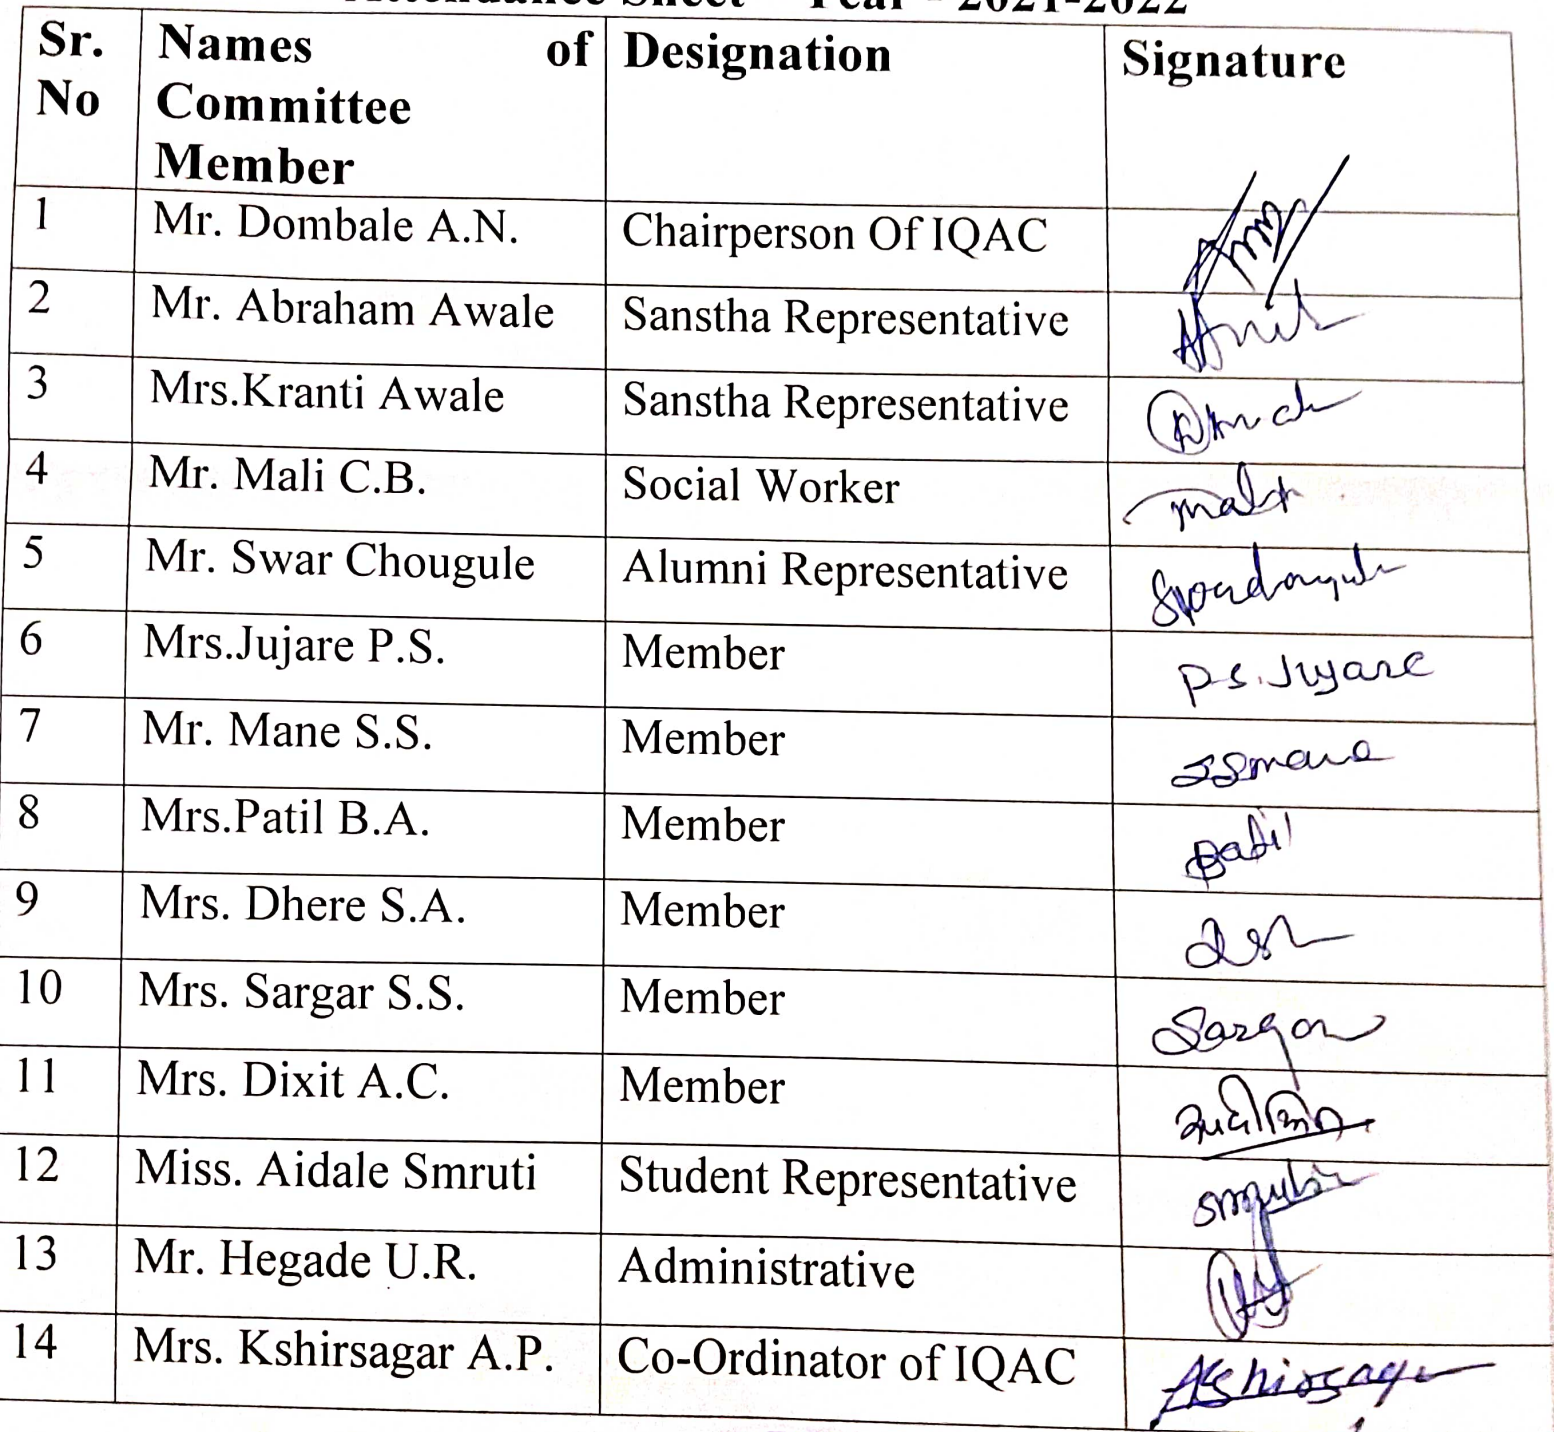 Attendance Sheet - Year - 2021-2022
Sr. No Names of Committee Member Designation Signature
1 Mr. Dombale A.N. Chairperson Of IQAC
2 Mr. Abraham Awale Sanstha Representative
3 Mrs.Kranti Awale Sanstha Representative
4 Mr. Mali C.B. Social Worker
5 Mr. Swar Chougule Alumni Representative
6 Mrs.Jujare P.S. Member P.S. Jujare
7 Mr. Mane S.S. Member SSmane
8 Mrs.Patil B.A. Member Patil
9 Mrs. Dhere S.A. Member
10 Mrs. Sargar S.S. Member Sargar
11 Mrs. Dixit A.C. Member
12 Miss. Aidale Smruti Student Representative
13 Mr. Hegade U.R. Administrative
14 Mrs. Kshirsagar A.P. Co-Ordinator of IQAC AKshirsagar